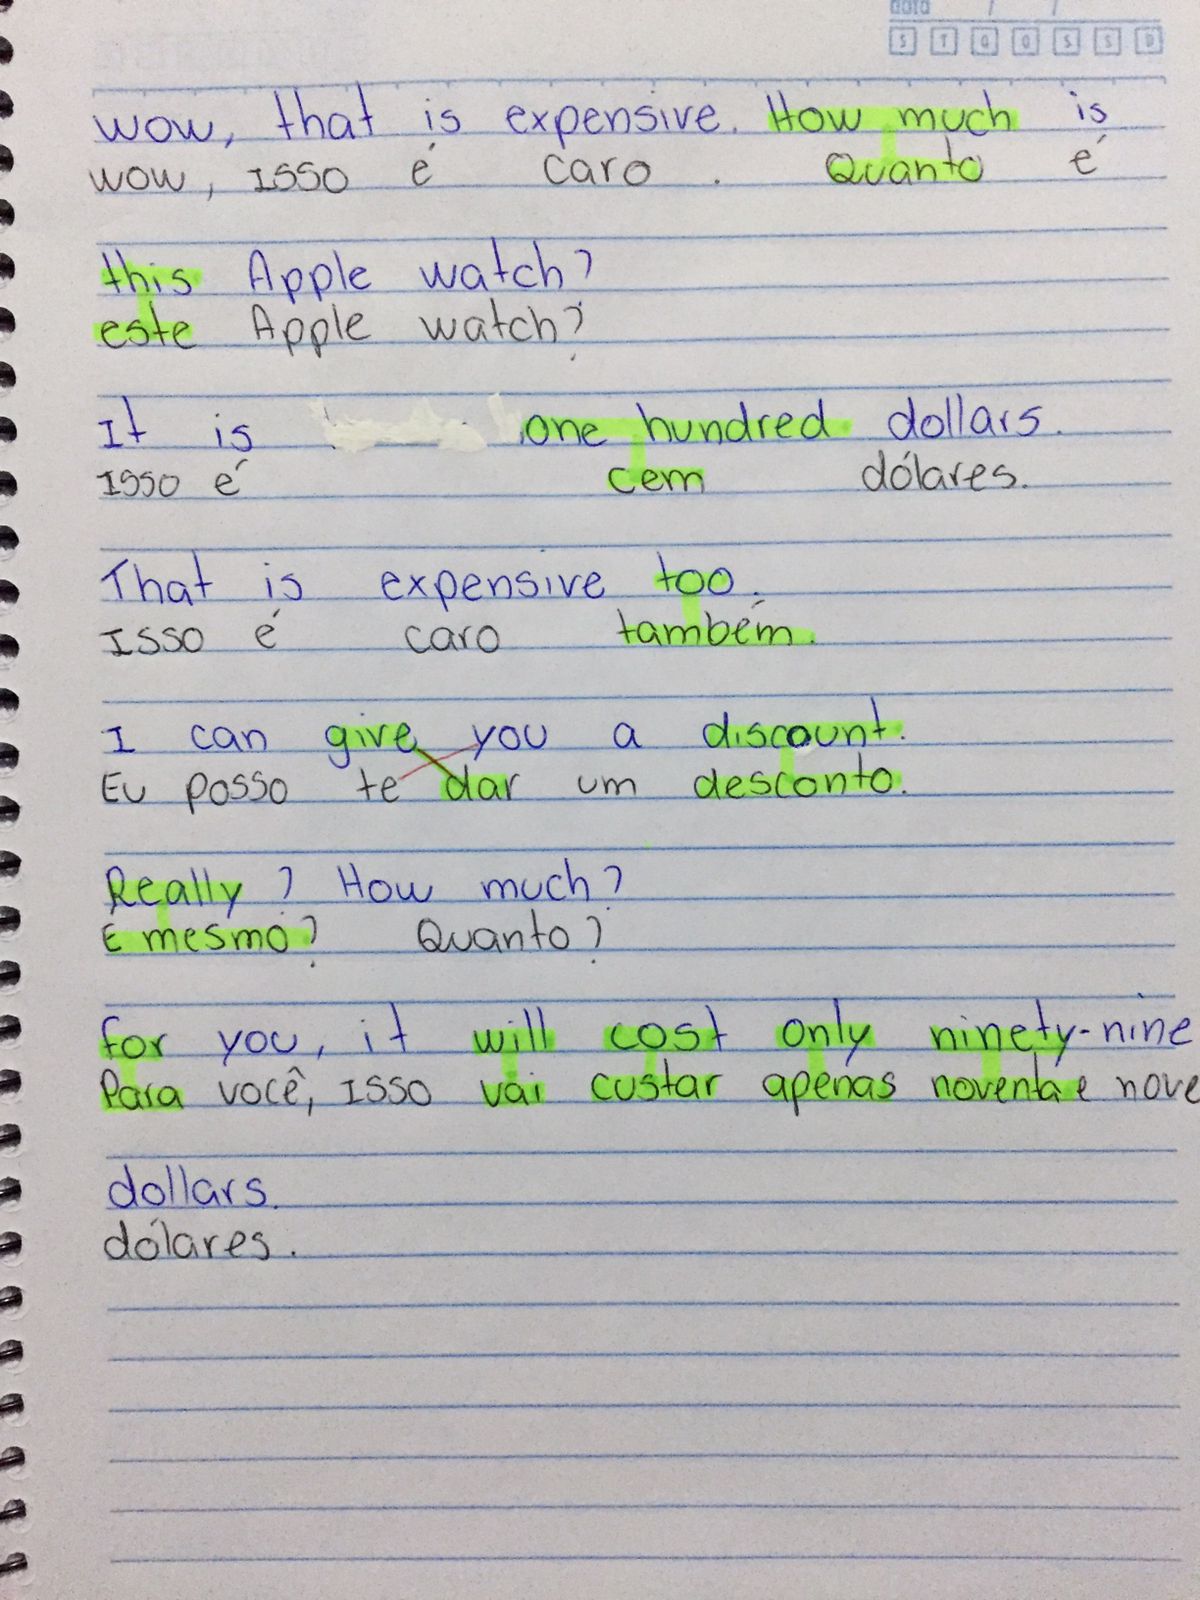 data / /
S T Q Q S S D
wow, that is expensive. How much is
wow, isso é caro. Quanto é
this Apple watch?
este Apple watch?
It is one hundred dollars.
Isso é cem dólares.
That is expensive too.
Isso é caro também.
I can give you a discount.
Eu posso te dar um desconto.
Really? How much?
É mesmo? Quanto?
for you, it will cost only ninety-nine
Para você, isso vai custar apenas noventa e nove
dollars.
dólares.